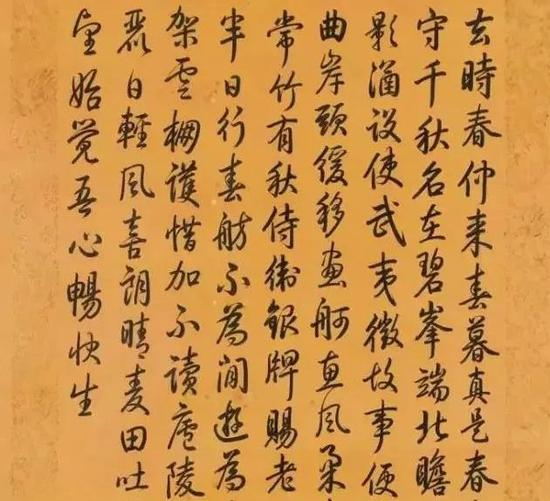 去時春仲来春暮真是春
守千秋名在碧峯端北瞻
影涵设使武夷徵故事便
曲岸頭緩移画舸惠风柔
常竹有秋侍衛銀牌賜老
半日行春舫不為閒遊為
架雲柵護惜加不讀廬陵
麗日輕风喜朗晴麦田吐
望始觉吾心暢快生